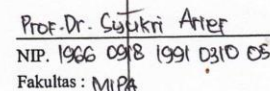 Prof. Dr. Syukri Arief
NIP. 1966 0918 1991 0310 05
Fakultas : MIPA